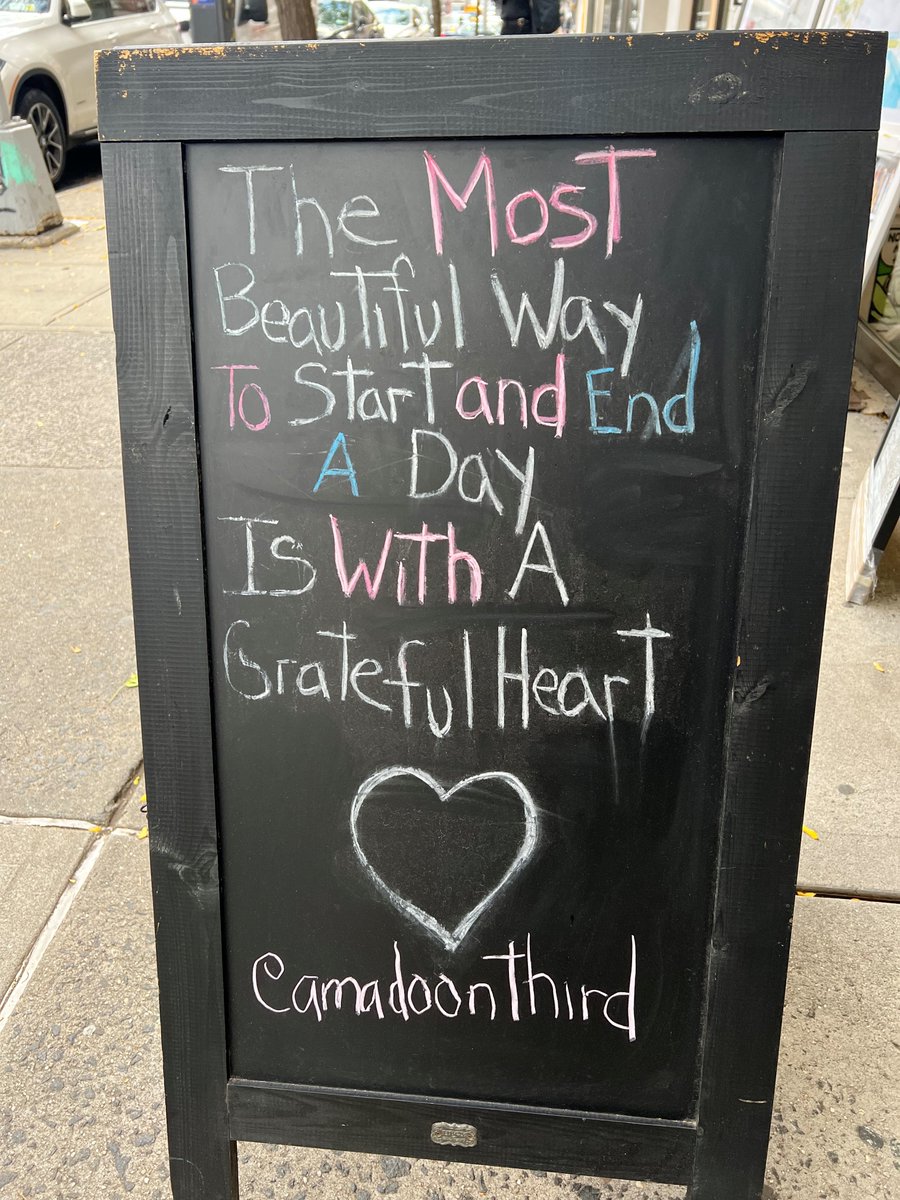 The Most
Beautiful Way
To Start and End
A Day
Is With A
Grateful Heart
CamadoonThird